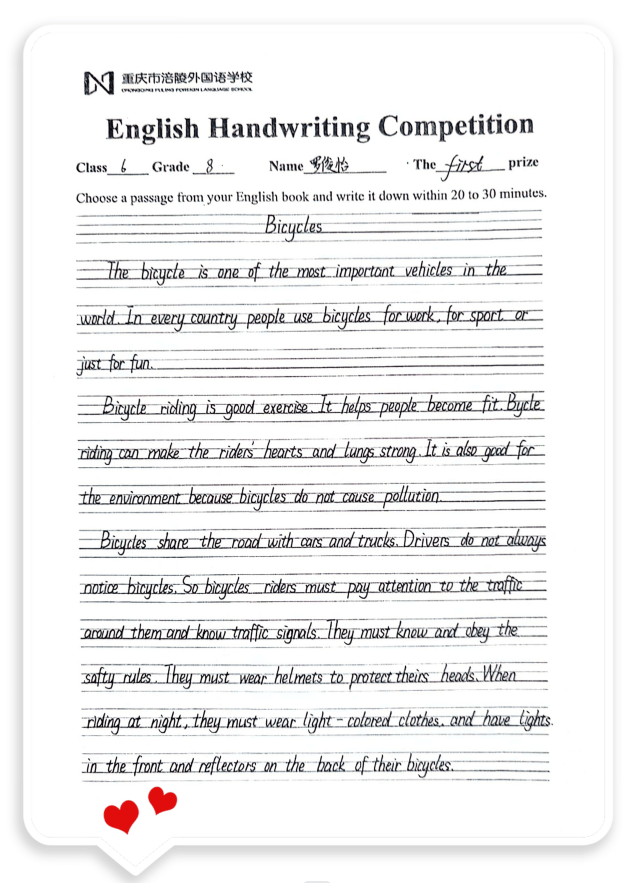 重庆市涪陵外国语学校
CHONGQING FULING FOREIGN LANGUAGE SCHOOL
English Handwriting Competition
Class 6 Grade 8 Name 罗俊怡 The first prize
Choose a passage from your English book and write it down within 20 to 30 minutes.
Bicycles
The bicycle is one of the most important vehicles in the
world. In every country people use bicycles for work, for sport or
just for fun.
Bicycle riding is good exercise. It helps people become fit. Bycle
riding can make the riders' hearts and lungs strong. It is also good for
the environment because bicycles do not cause pollution.
Bicycles share the road with cars and trucks. Drivers do not always
notice bicycles. So bicycles riders must pay attention to the traffic
around them and know traffic signals. They must know and obey the
safty rules. They must wear helmets to protect theirs heads. When
riding at night, they must wear light-colored clothes. and have lights
in the front and reflectors on the back of their bicycles.